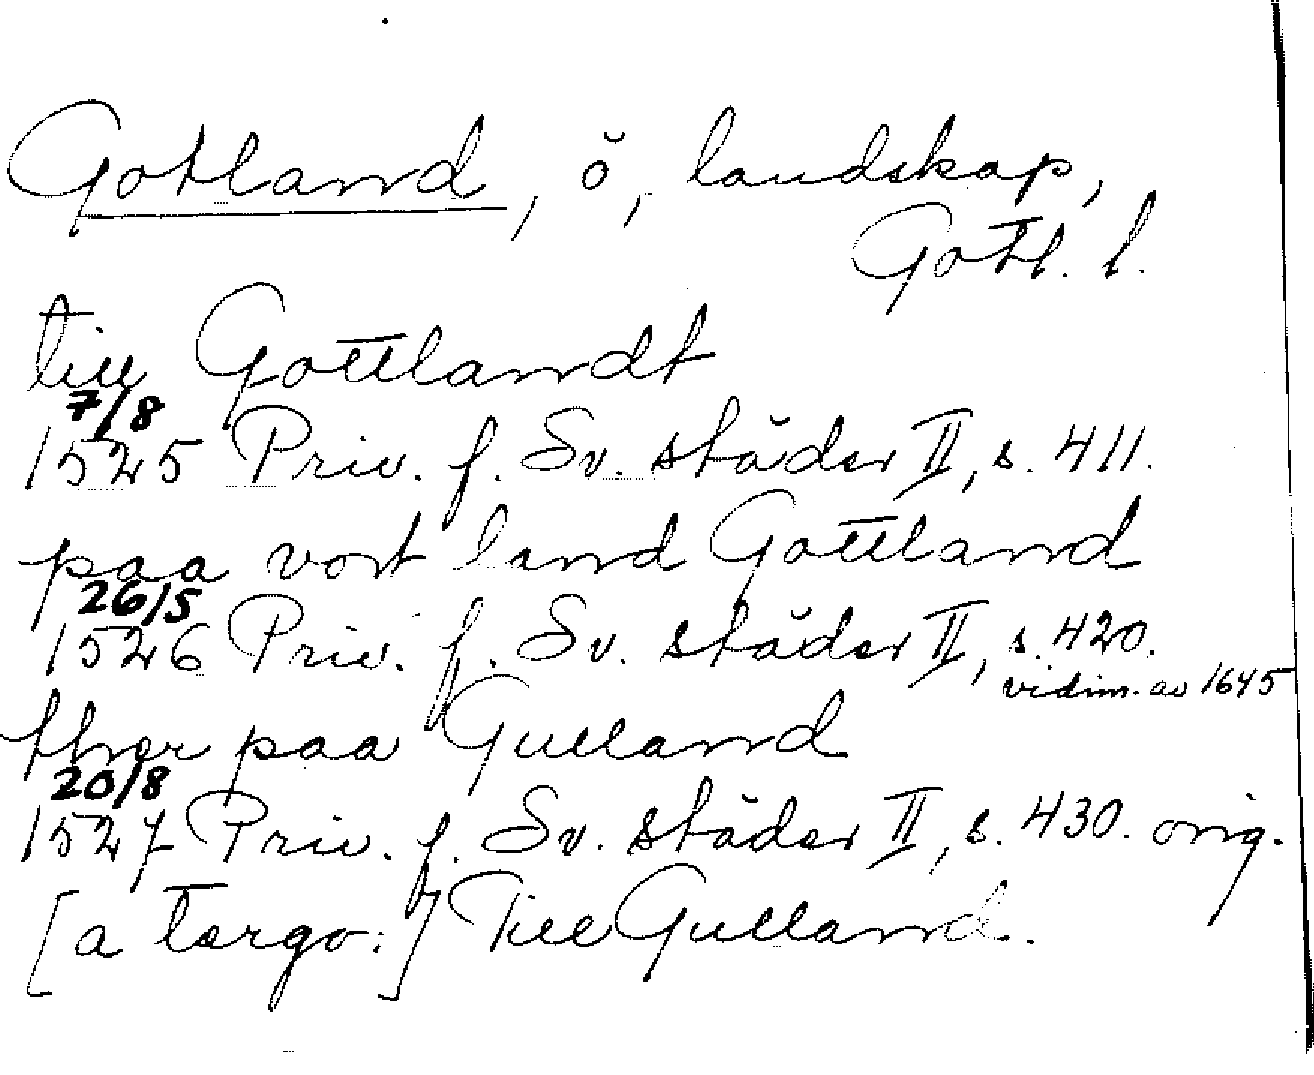 Gotland, ö, landskap,
Gotl. l.
till Gottlandt
7/8
1525 Priv. f. Sv. städer II, s. 411.
paa vort land Gottland
26/5
1526 Priv. f. Sv. städer II, s. 420.
vidim. av 1645
ther paa Gulland
20/8
1527 Priv. f. Sv. städer II, s. 430. orig.
[a tergo:] Till Gulland.